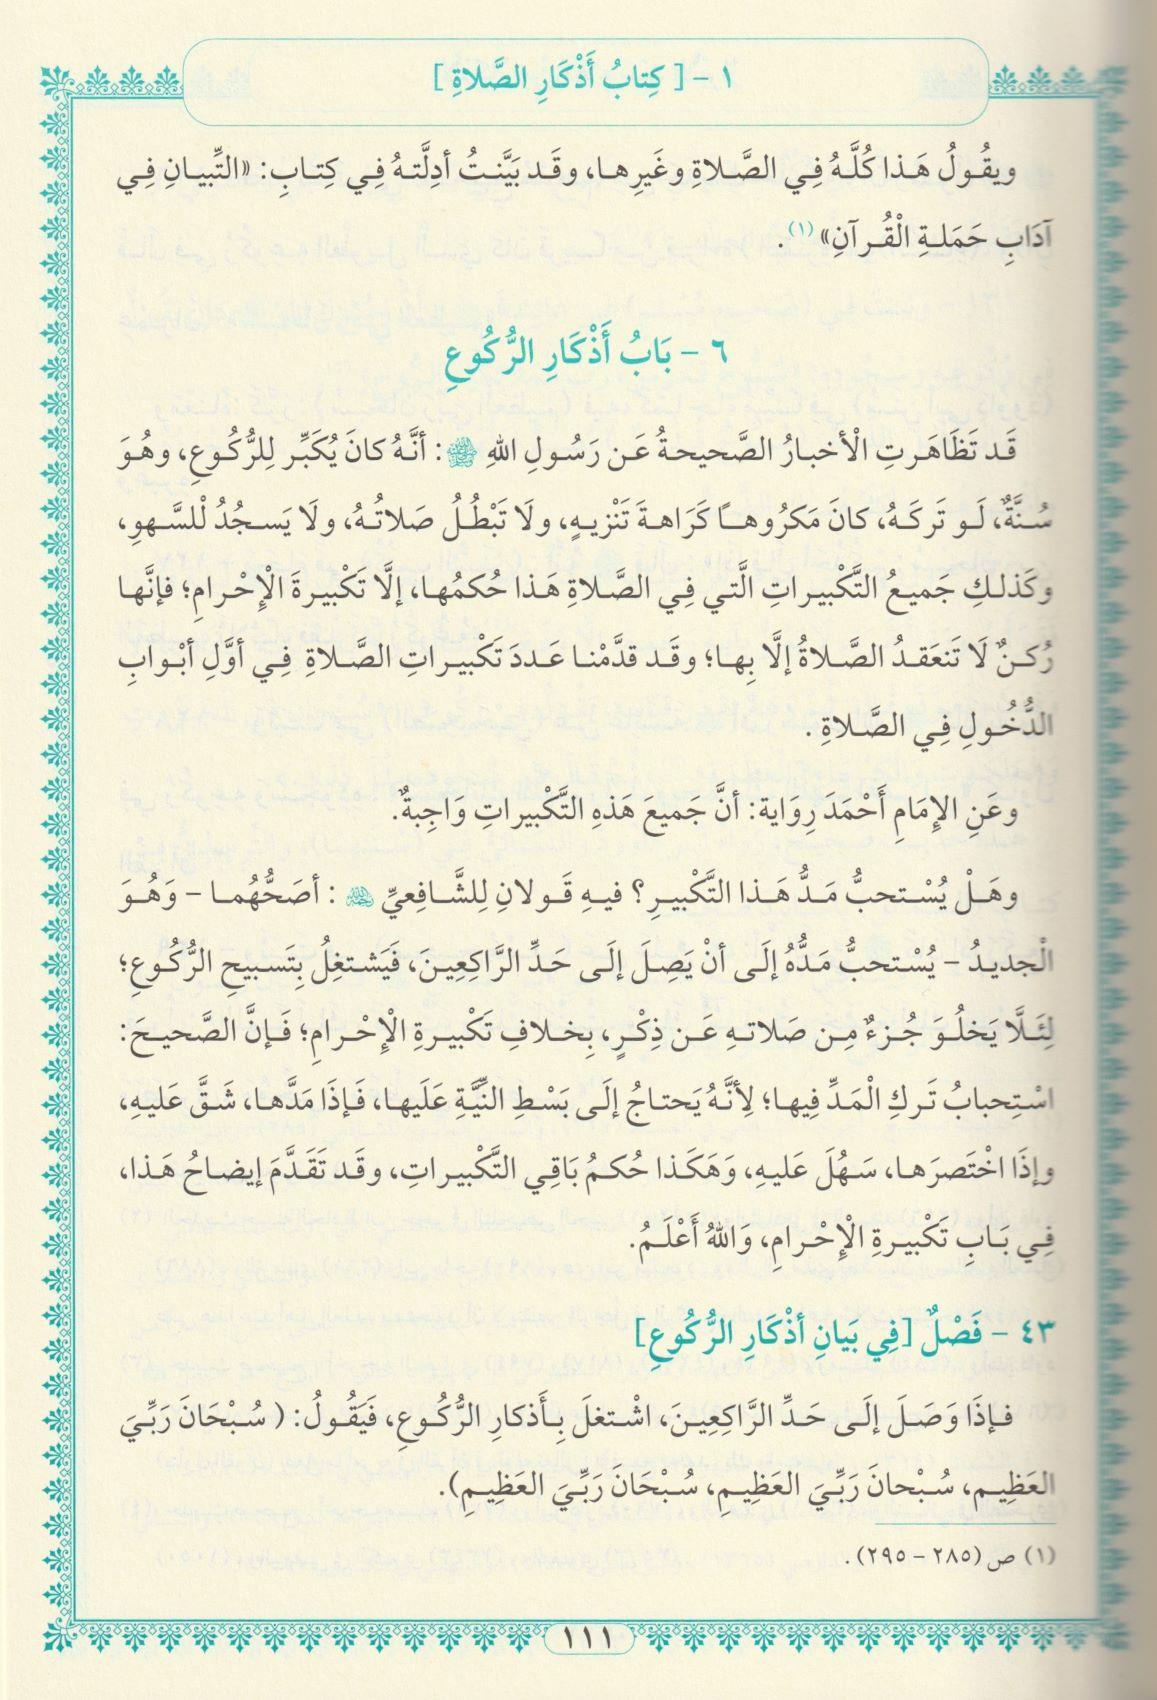 ١ - [ كِتابُ أَذْكَارِ الصَّلاةِ ]
ويقُولُ هَذا كُلَّهُ فِي الصَّلاةِ وغَيرِها، وقَد بَيَّنتُ أدِلَّتهُ فِي كِتابِ: «التِّبيانِ فِي
آدَابِ حَمَلةِ الْقُرآنِ» (١).
٦ - بَابُ أَذْكَارِ الرُّكُوعِ
قَد تَظَاهَرتِ الْأخبارُ الصَّحيحةُ عَن رَسُولِ اللهِ ﷺ: أنَّهُ كانَ يُكَبِّر لِلرُّكُوعِ، وهُوَ
سُنَّةٌ، لَو تَركَهُ، كانَ مَكرُوهاً كَرَاهةَ تَنْزيهٍ، ولَا تَبْطُلُ صَلاتُهُ، ولَا يَسجُدُ لْلسَّهوِ،
وكَذلكِ جَميعُ التَّكْبيراتِ الَّتي فِي الصَّلاةِ هَذا حُكمُها، إلَّا تَكْبيرةَ الْإِحْرامِ؛ فإنَّها
رُكنٌ لَا تَنعَقدُ الصَّلاةُ إلَّا بِها؛ وقَد قدَّمْنا عَددَ تَكْبيراتِ الصَّلاةِ فِي أوَّلِ أبْوابِ
الدُّخُولِ فِي الصَّلاةِ .
وعَنِ الإمَامِ أَحْمَدَ رِوَاية: أنَّ جَميعَ هَذهِ التَّكْبيراتِ وَاجِبةٌ.
وهَلْ يُسْتحبُّ مَدُّ هَذا التَّكْبيرِ؟ فيهِ قَولانِ لِلشَّافِعيِّ ﷺ: أصَحُّهُما - وَهُوَ
الْجديدُ - يُسْتحبُّ مَدُّهُ إلَى أنْ يَصِلَ إلَى حَدِّ الرَّاكِعِينَ، فَيَشتغِلُ بِتَسبيحِ الرُّكُوعِ؛
لِئَلَّا يَخلُوَ جُزءٌ مِن صَلاتهِ عَن ذِكْرٍ، بِخلافِ تَكْبيرةِ الْإِحْرامِ؛ فَإنَّ الصَّحيحَ:
اسْتِحبابُ تَركِ الْمَدِّ فِيها؛ لِأنَّهُ يَحتاجُ إلَى بَسْطِ النِّيَّةِ عَلَيها، فَإذَا مَدَّها، شَقَّ عَليهِ،
وإذَا اخْتَصرَها، سَهُلَ عَليهِ، وَهَكَذا حُكمُ بَاقِي التَّكْبيراتِ، وقَد تَقَدَّمَ إيضاحُ هَذا،
فِي بَابِ تَكْبيرةِ الْإِحْرامِ، وَاللهُ أَعْلَمُ.
٤٣ - فَصْلٌ [فِي بَيانِ أذْكَارِ الرُّكُوعِ]
فإذَا وَصَلَ إلَى حَدِّ الرَّاكِعِينَ، اشْتغلَ بِأَذكارِ الرُّكُوعِ، فَيَقُولُ: ( سُبْحَانَ رَبِّيَ
العَظِيم، سُبْحانَ رَبِّيَ العَظِيمِ، سُبْحَانَ رَبِّيَ العَظِيمِ).
(١) ص (٢٨٥ - ٢٩٥).
١١١